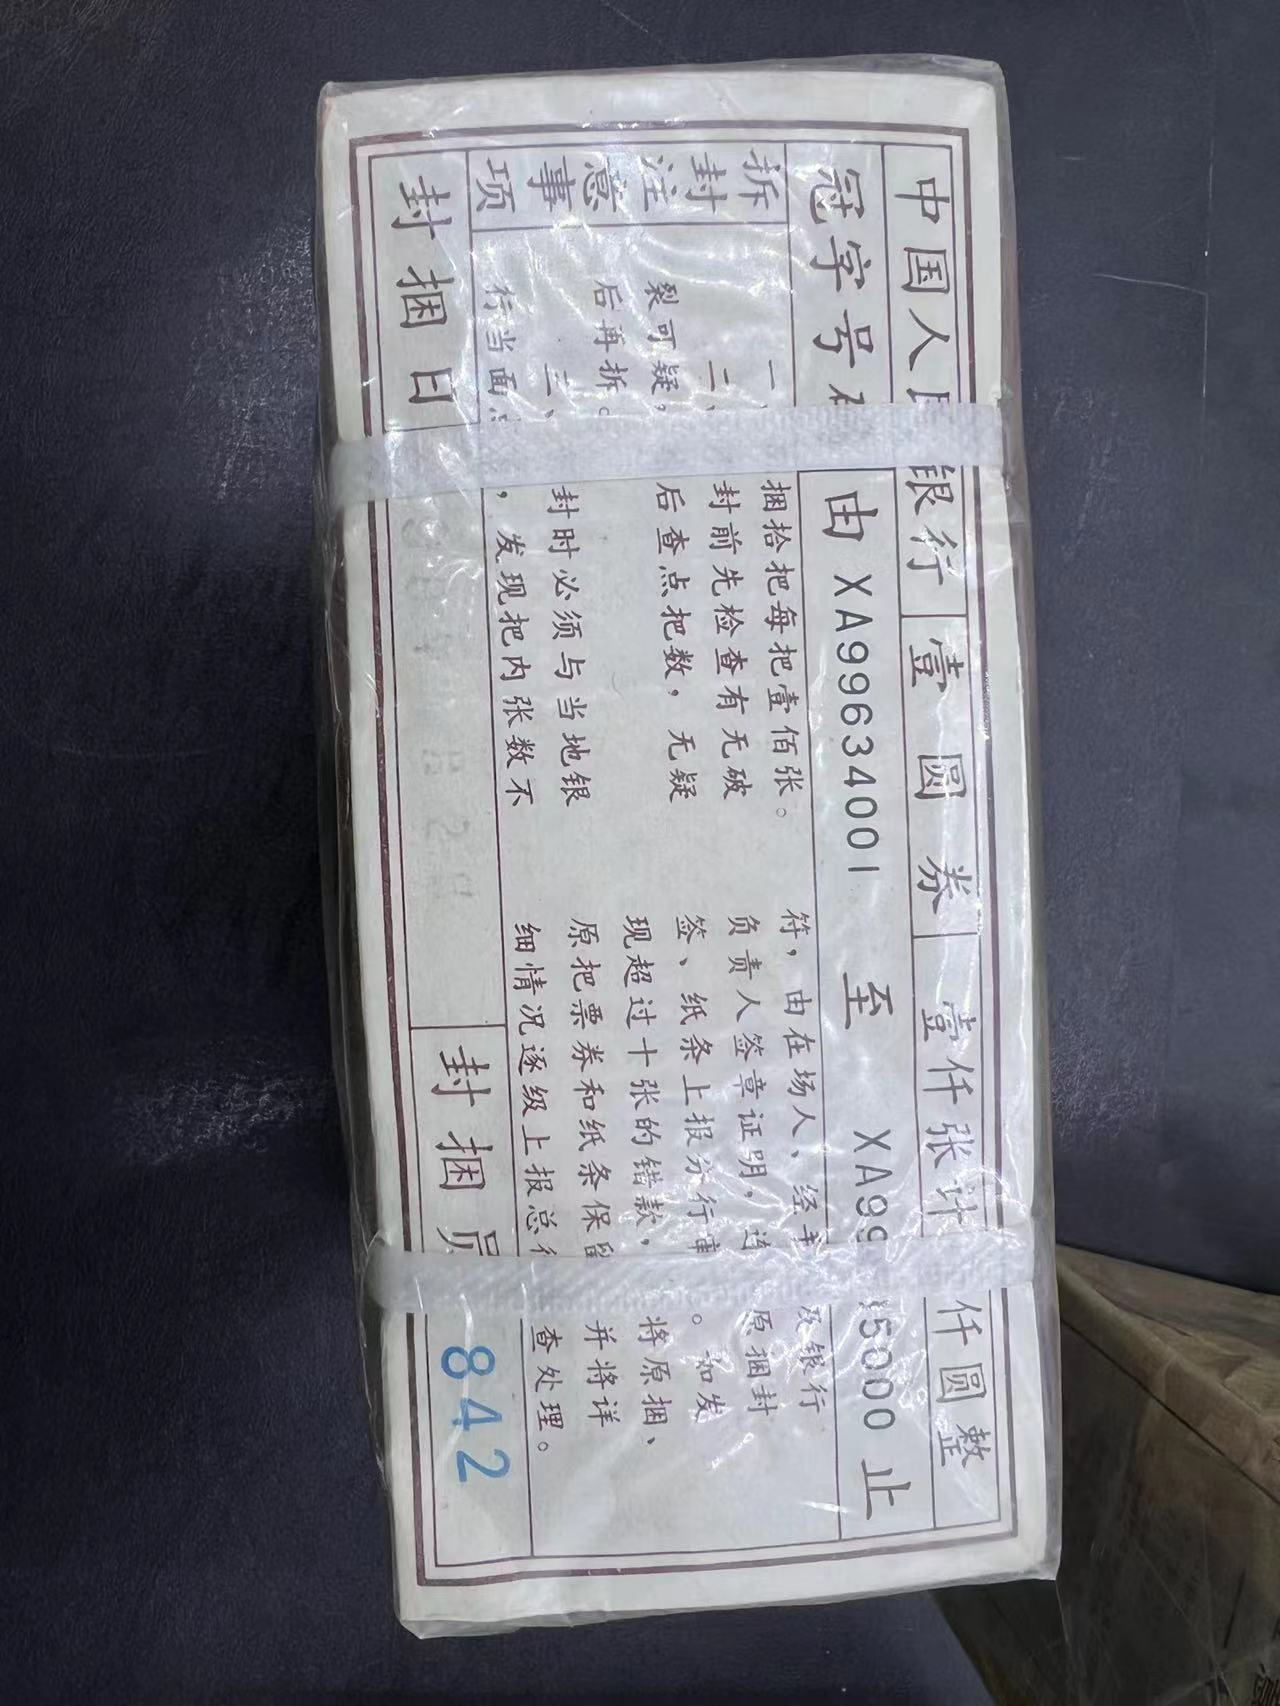 中国人民银行 壹圆券 壹仟张计 仟圆整
冠字号 由 XA99634001 至 XA99 5000 止
拆封注意事项
一、 捆拾把每把壹佰张。
二、 封前先检查有无破
裂可疑, 后查点把数，无疑
后再拆。
三、 封时必须与当地银
行当面 ，发现把内张数不
符，由在场人、经 及银行
负责人签章证明，连 原捆封
签、纸条上报分行 。如发
现超过十张的错款， 将原捆、
原把票券和纸条保留 并将详
细情况逐级上报总 查处理。
封捆日 封捆员 842